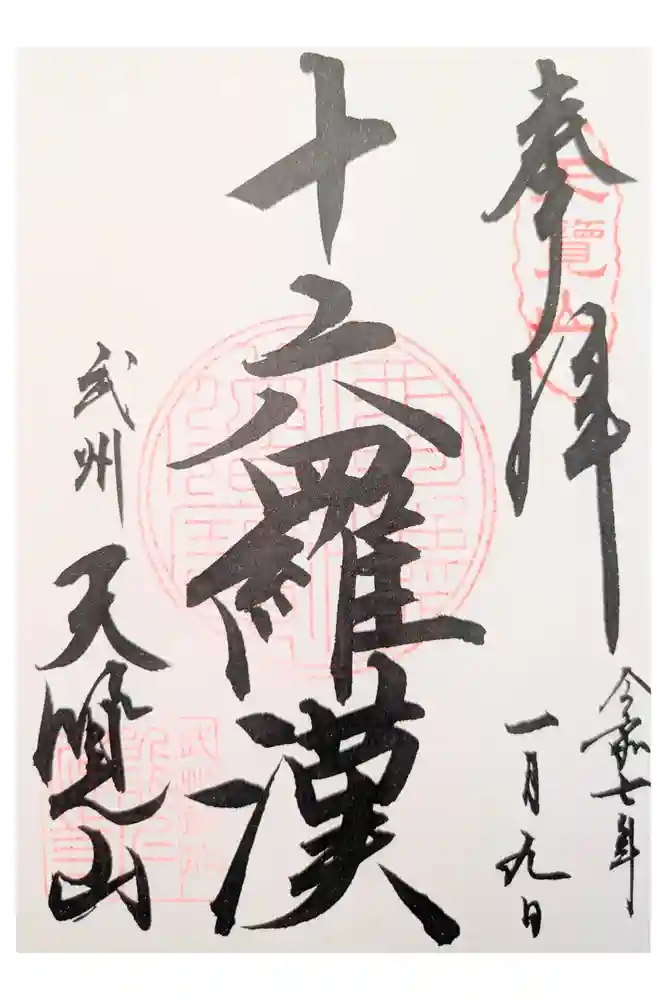 奉拝
天覽山
令和七年
一月九日
十六羅漢
武州
天覧山